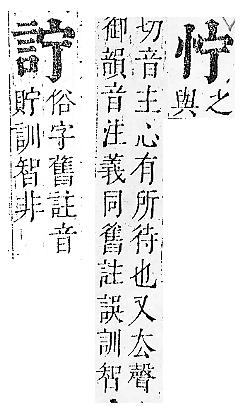 㤖之
與
切音主心有所待也又厺聲
御韻音注義同舊註誤訓智
詝俗字舊註音
貯訓智非